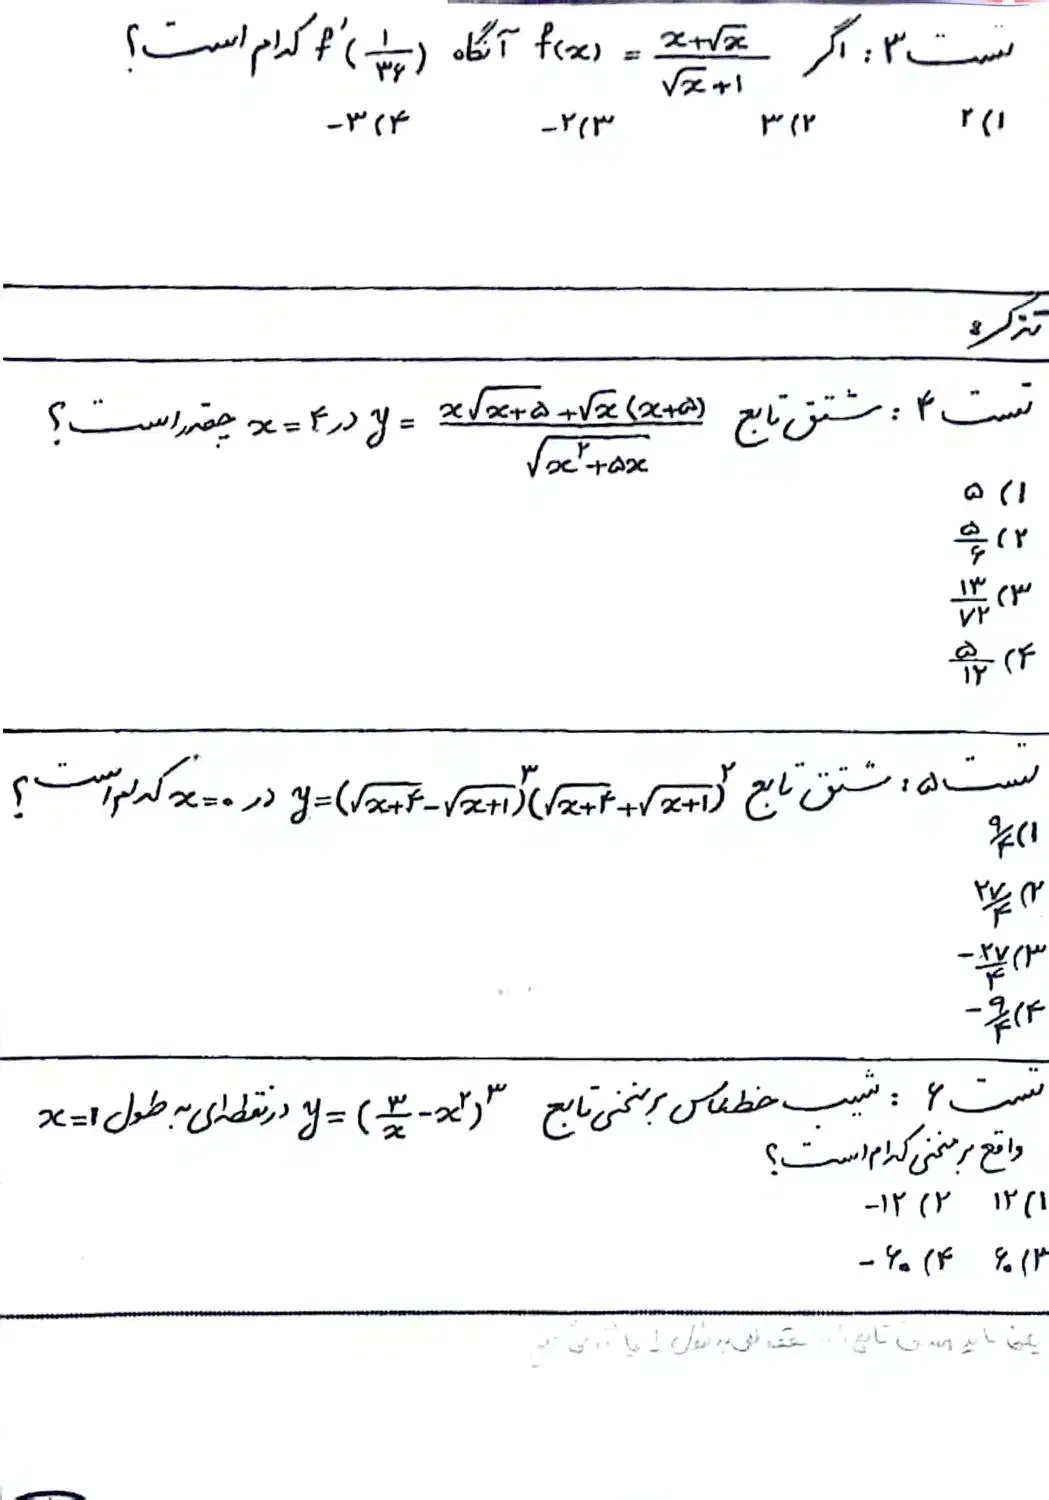 تست ۳: اگر f(x) = (x+√x)/(√x+۱) آنگاه f'(۱/۳۶) کدام است؟
۱) ۲ ۲) ۳ ۳) ۲- ۴) ۳-
تذکر:
تست ۴: مشتق تابع y = (x√(x+۵) + √x (x+۵))/√(x^۲+۵x) در x=۴ چقدر است؟
۱) ۵
۲) ۵/۶
۳) ۱۳/۷۲
۴) ۵/۱۲
تست ۵: مشتق تابع y=(√(x+۴)-√(x+۱))^۳(√(x+۴)+√(x+۱))^۲ در x=۰ کدام است؟
۱) ۹/۴
۲) ۲۷/۴
۳) -۲۷/۴
۴) -۹/۴
تست ۶: شیب خط مماس بر منحنی تابع y=(۳/x - x^۲)^۳ در نقطه‌ای به طول x=۱
واقع بر منحنی کدام است؟
۱) ۱۲ ۲) ۱۲-
۳) ۶۰ ۴) ۶۰-